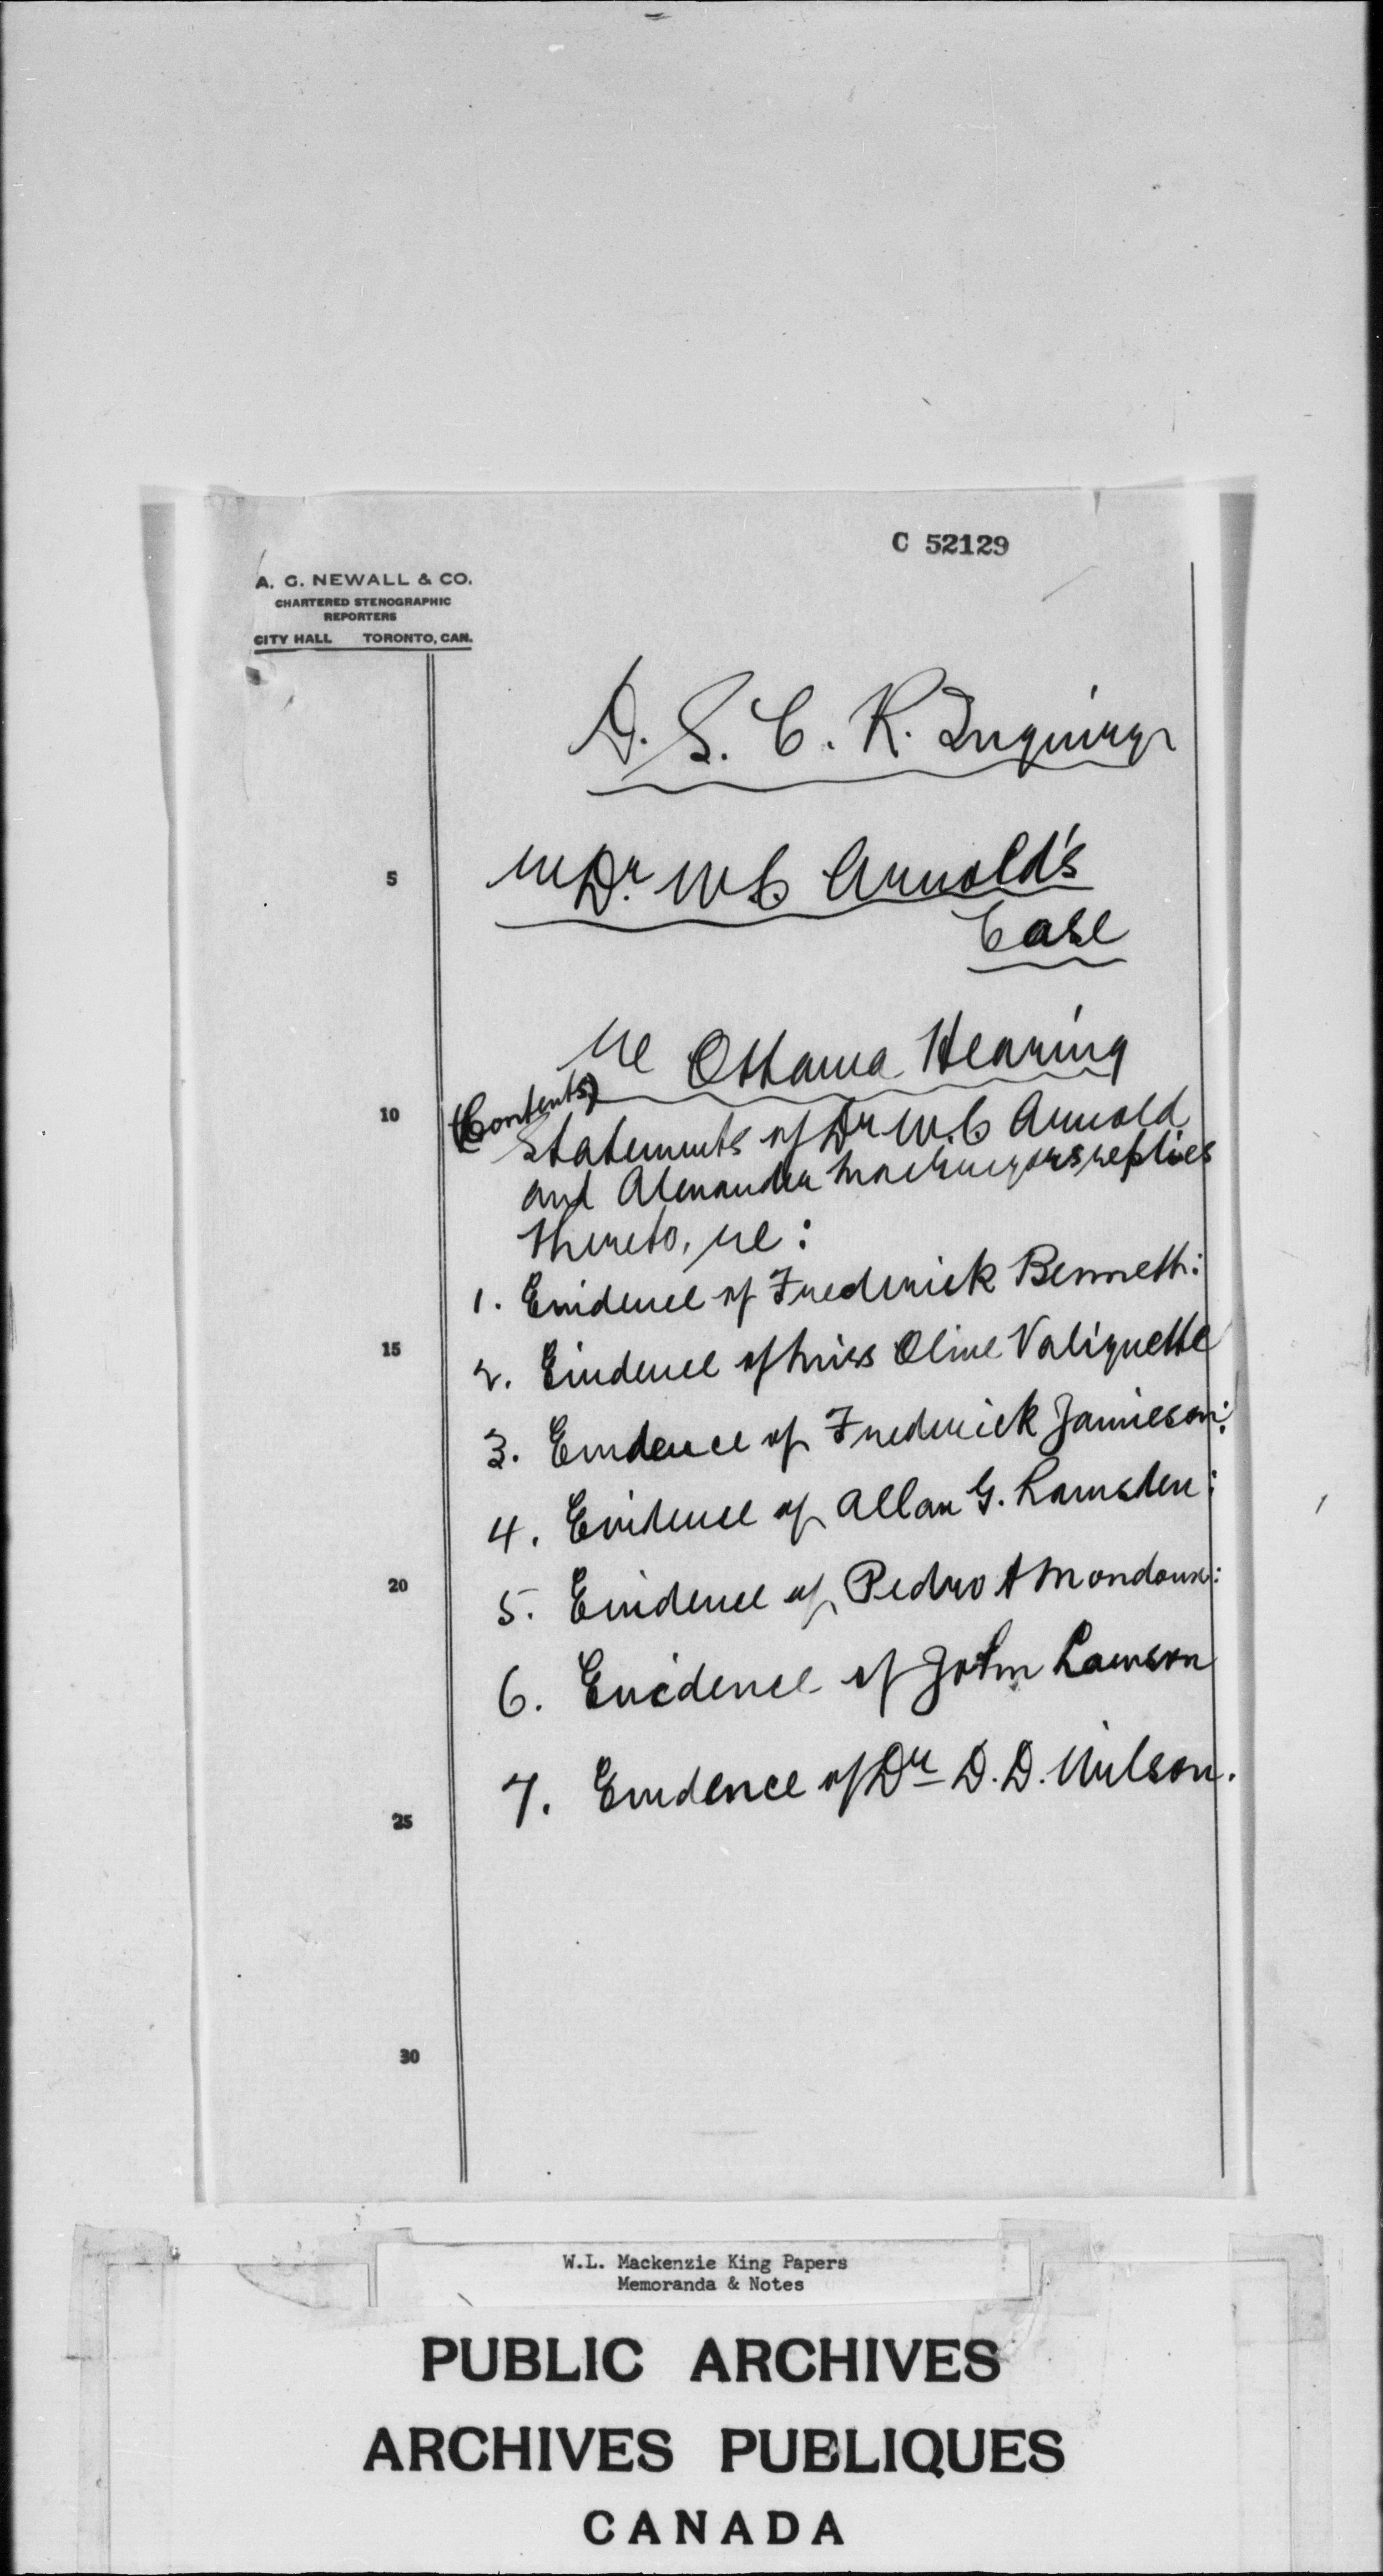 C 52129
A. G. NEWALL & CO.
CHARTERED STENOGRAPHIC
REPORTERS
CITY HALL TORONTO, CAN.
D. S. C. R. Inquiry
5
re Dr. W C Arnold's
Case
re Ottawa Hearing
10
(Contents)
Statements of Dr W. C Arnold
and Alexander replies
thereto, re:
1. Evidence of Frederick Bennett:
15
2. Evidence of Miss Olive Valiquette
3. Evidence of Frederick Jamieson:
4. Evidence of Allan G. Lumsden:
20
5. Evidence of Pedro A Mondoux:
6. Evidence of John Lawson
7. Evidence of Dr D. D. Wilson.
25
30
W.L. Mackenzie King Papers
Memoranda & Notes
PUBLIC ARCHIVES
ARCHIVES PUBLIQUES
CANADA